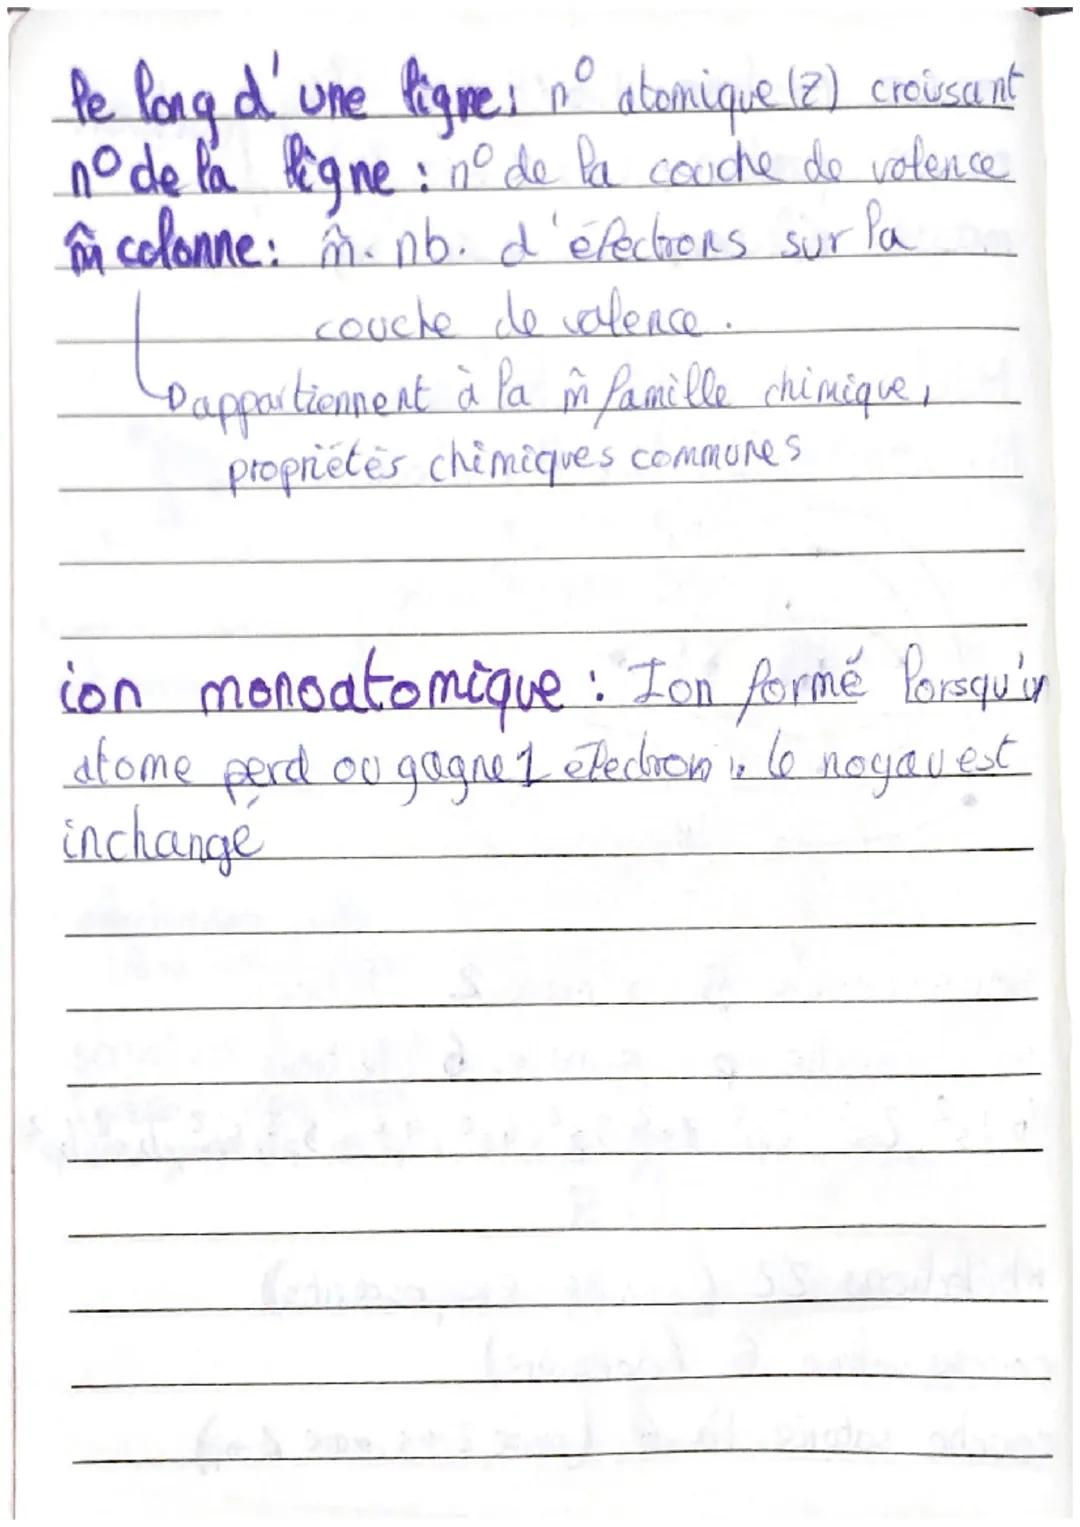 le long d'une ligne : n° atomique (Z) croissant
n° de la ligne : n° de la couche de valence
m̂ colonne : m̂. nb. d'électrons sur la
couche de valence.
appartiennent à la m̂ famille chimique,
propriétés chimiques communes
ion monoatomique : Ion formé lorsqu'un
atome perd ou gagne 1 électron ; le noyau est
inchangé